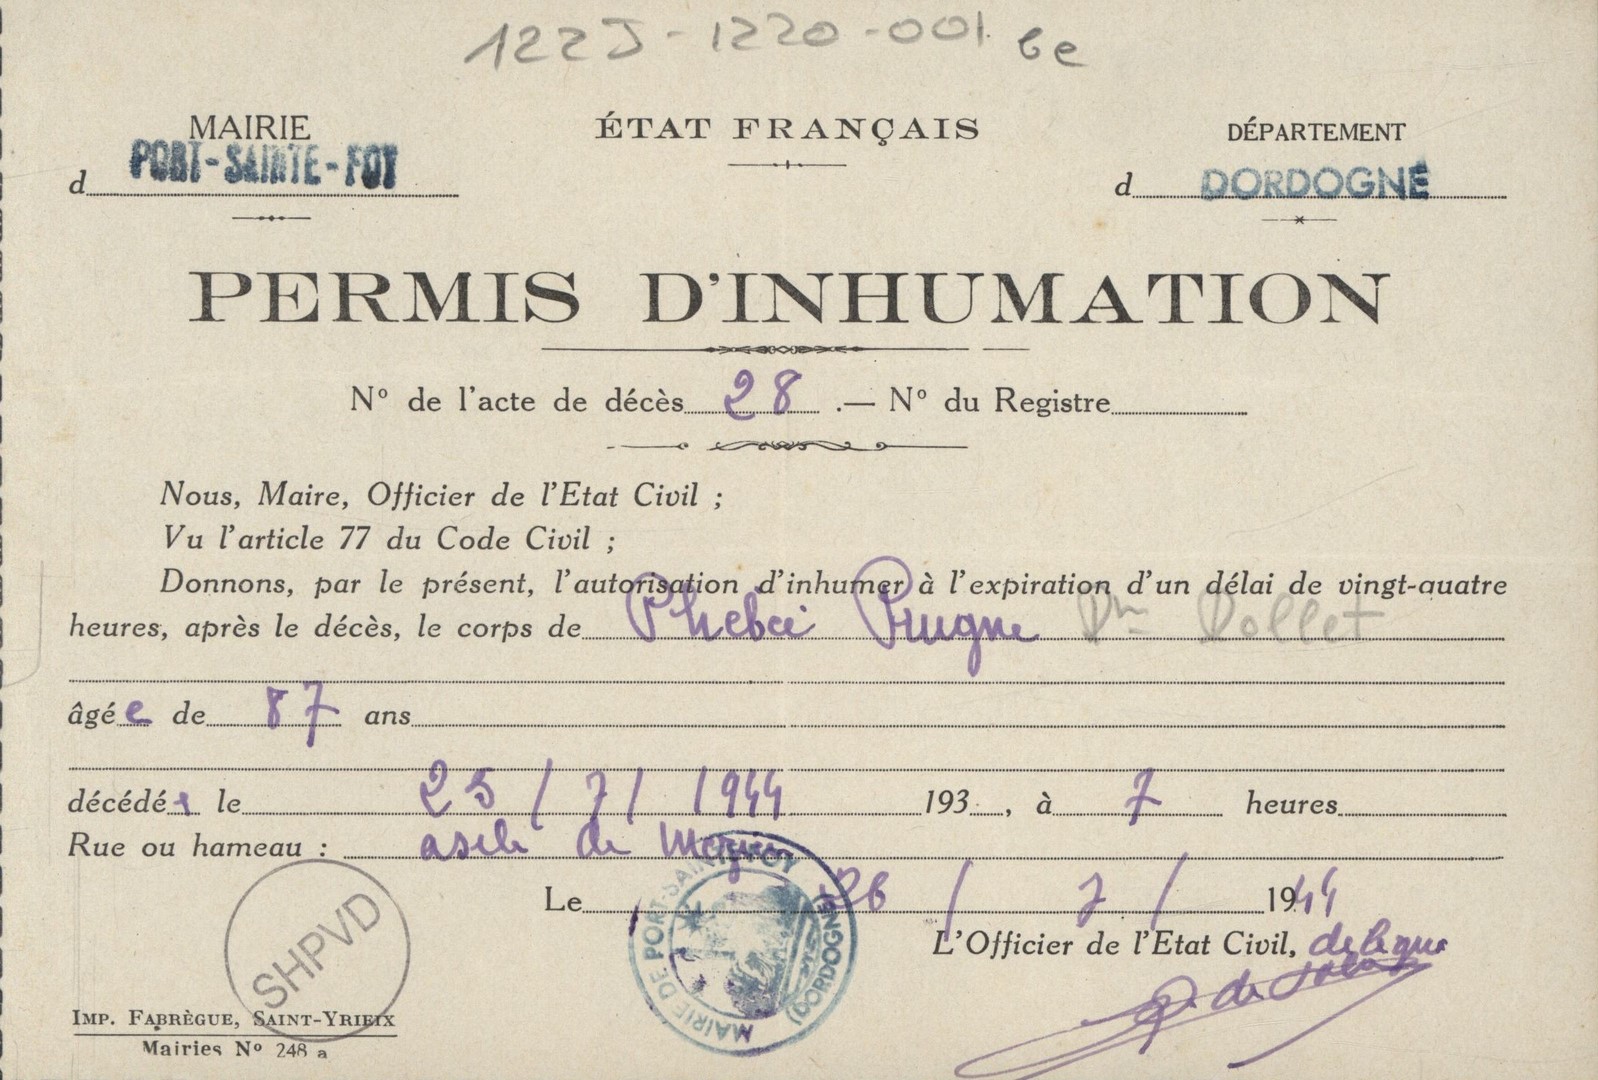 122J-1220-001 be
MAIRIE
d PORT-SAINTE-FOY
ÉTAT FRANÇAIS
DÉPARTEMENT
d DORDOGNE
PERMIS D'INHUMATION
N° de l'acte de décès 28 .— N° du Registre
Nous, Maire, Officier de l'Etat Civil ;
Vu l'article 77 du Code Civil ;
Donnons, par le présent, l'autorisation d'inhumer à l'expiration d'un délai de vingt-quatre
heures, après le décès, le corps de Prugne
âgée de 87 ans
décédé le 25/7/1944 193 , à 7 heures
Rue ou hameau : asile de
Le 26/7/1944
L'Officier de l'Etat Civil,
MAIRIE DE PORT-SAINTE-FOY
(DORDOGNE)
SHPVD
IMP. FABRÈGUE, SAINT-YRIEIX
Mairies N° 248 a